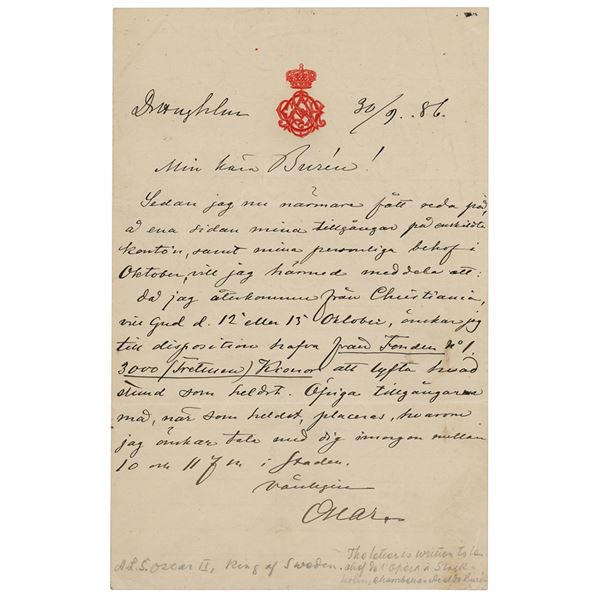 Drottningholm 30/9. 86.
Min kära Burén!
Sedan jag nu närmare fått reda på,
å ena sidan mina tillgångar på enskilda
konton, samt mina personliga behof i
Oktober, vill jag härmed meddela att:
då jag återkommer från Christiania,
vill Gud d. 12 eller 15 Oktober, önskar jag
till disposition hafva från Fonden No 1.
3000 (Tretusen) Kronor att lyfta hvad
stund som heldst. Öfriga tillgångarne
må, när som heldst, placeras, hvarom
jag önskar tala med dig imorgon mellan
10 och 11 f m i Staden.
Vänligen
Oscar.
A.L.S. Oscar II, King of Sweden.
The letter is written to the
chef de l'opéra à Stock-
holm, Chambellan